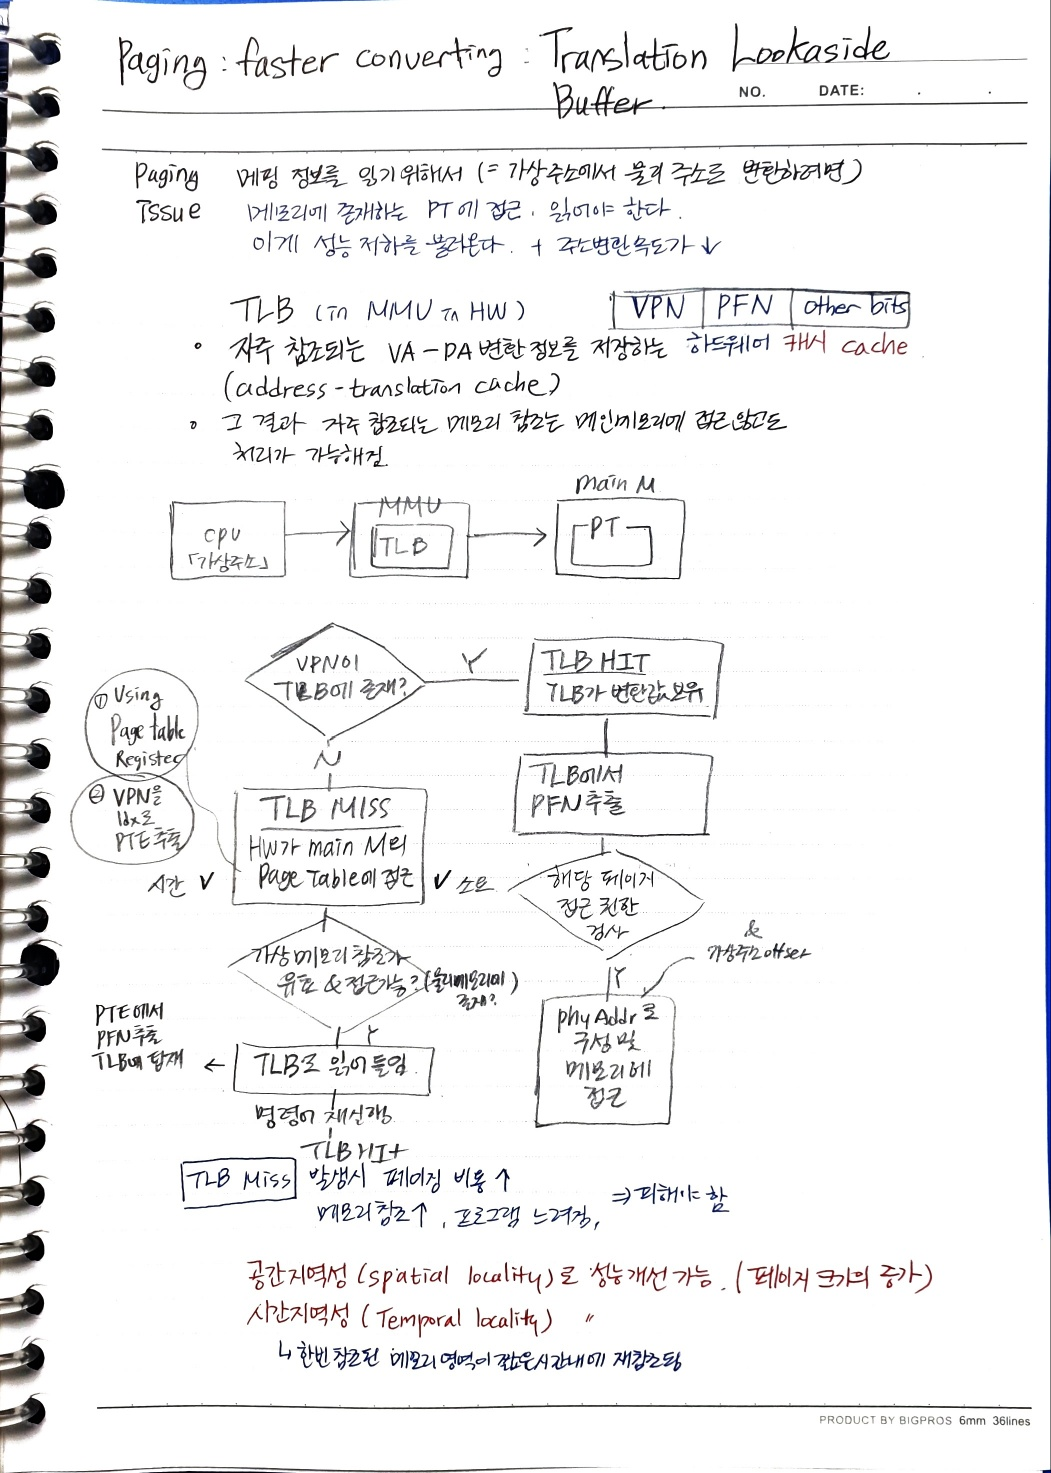 Paging : faster converting : Translation Lookaside
Buffer.
NO. DATE: . .
Paging 메핑 정보를 읽기위해서 (= 가상주소에서 물리 주소로 변환하려면)
Issue 메모리에 존재하는 PT에 접근. 읽어야 한다.
이게 성능 저하를 불러온다. + 주소변환속도가 ↓
TLB (in MMU in HW)
VPN PFN other bits
자주 참조되는 VA-PA변환정보를 저장하는 하드웨어 캐시 cache
(address-translation cache)
그 결과 자주 참조되는 메모리 참조는 메인메모리에 접근않고도
처리가 가능해짐
CPU
「가상주소」
MMU
TLB
main M
PT
VPN이
TLB에 존재?
Y
TLB HIT
TLB가 변환값보유
① Using
Page table
Register
N
TLB에서
PFN추출
② VPN을
idx로
PTE추출
TLB MISS
HW가 main M의
Page Table에 접근
시간 ✓
✓ 소요
해당 페이지
접근 권한
검사
&
가상주소 offset
가상메모리 참조가
유효 & 접근가능? (물리메모리에
존재?)
Y
phy Addr로
구성 및
메모리에
접근
PTE에서
PFN추출
TLB에 탑재
←
Y
TLB로 읽어들임
명령어 재실행
TLB Hit
TLB Miss 발생시 페이징 비용 ↑
메모리참조↑, 프로그램 느려짐, ⇒ 피해야 함
공간지역성 (spatial locality)로 성능개선 가능. (페이지 크기의 증가)
시간지역성 (Temporal locality) 〃
↳ 한번참조된 메모리영역이 짧은시간내에 재참조됨
PRODUCT BY BIGPROS 6mm 36lines